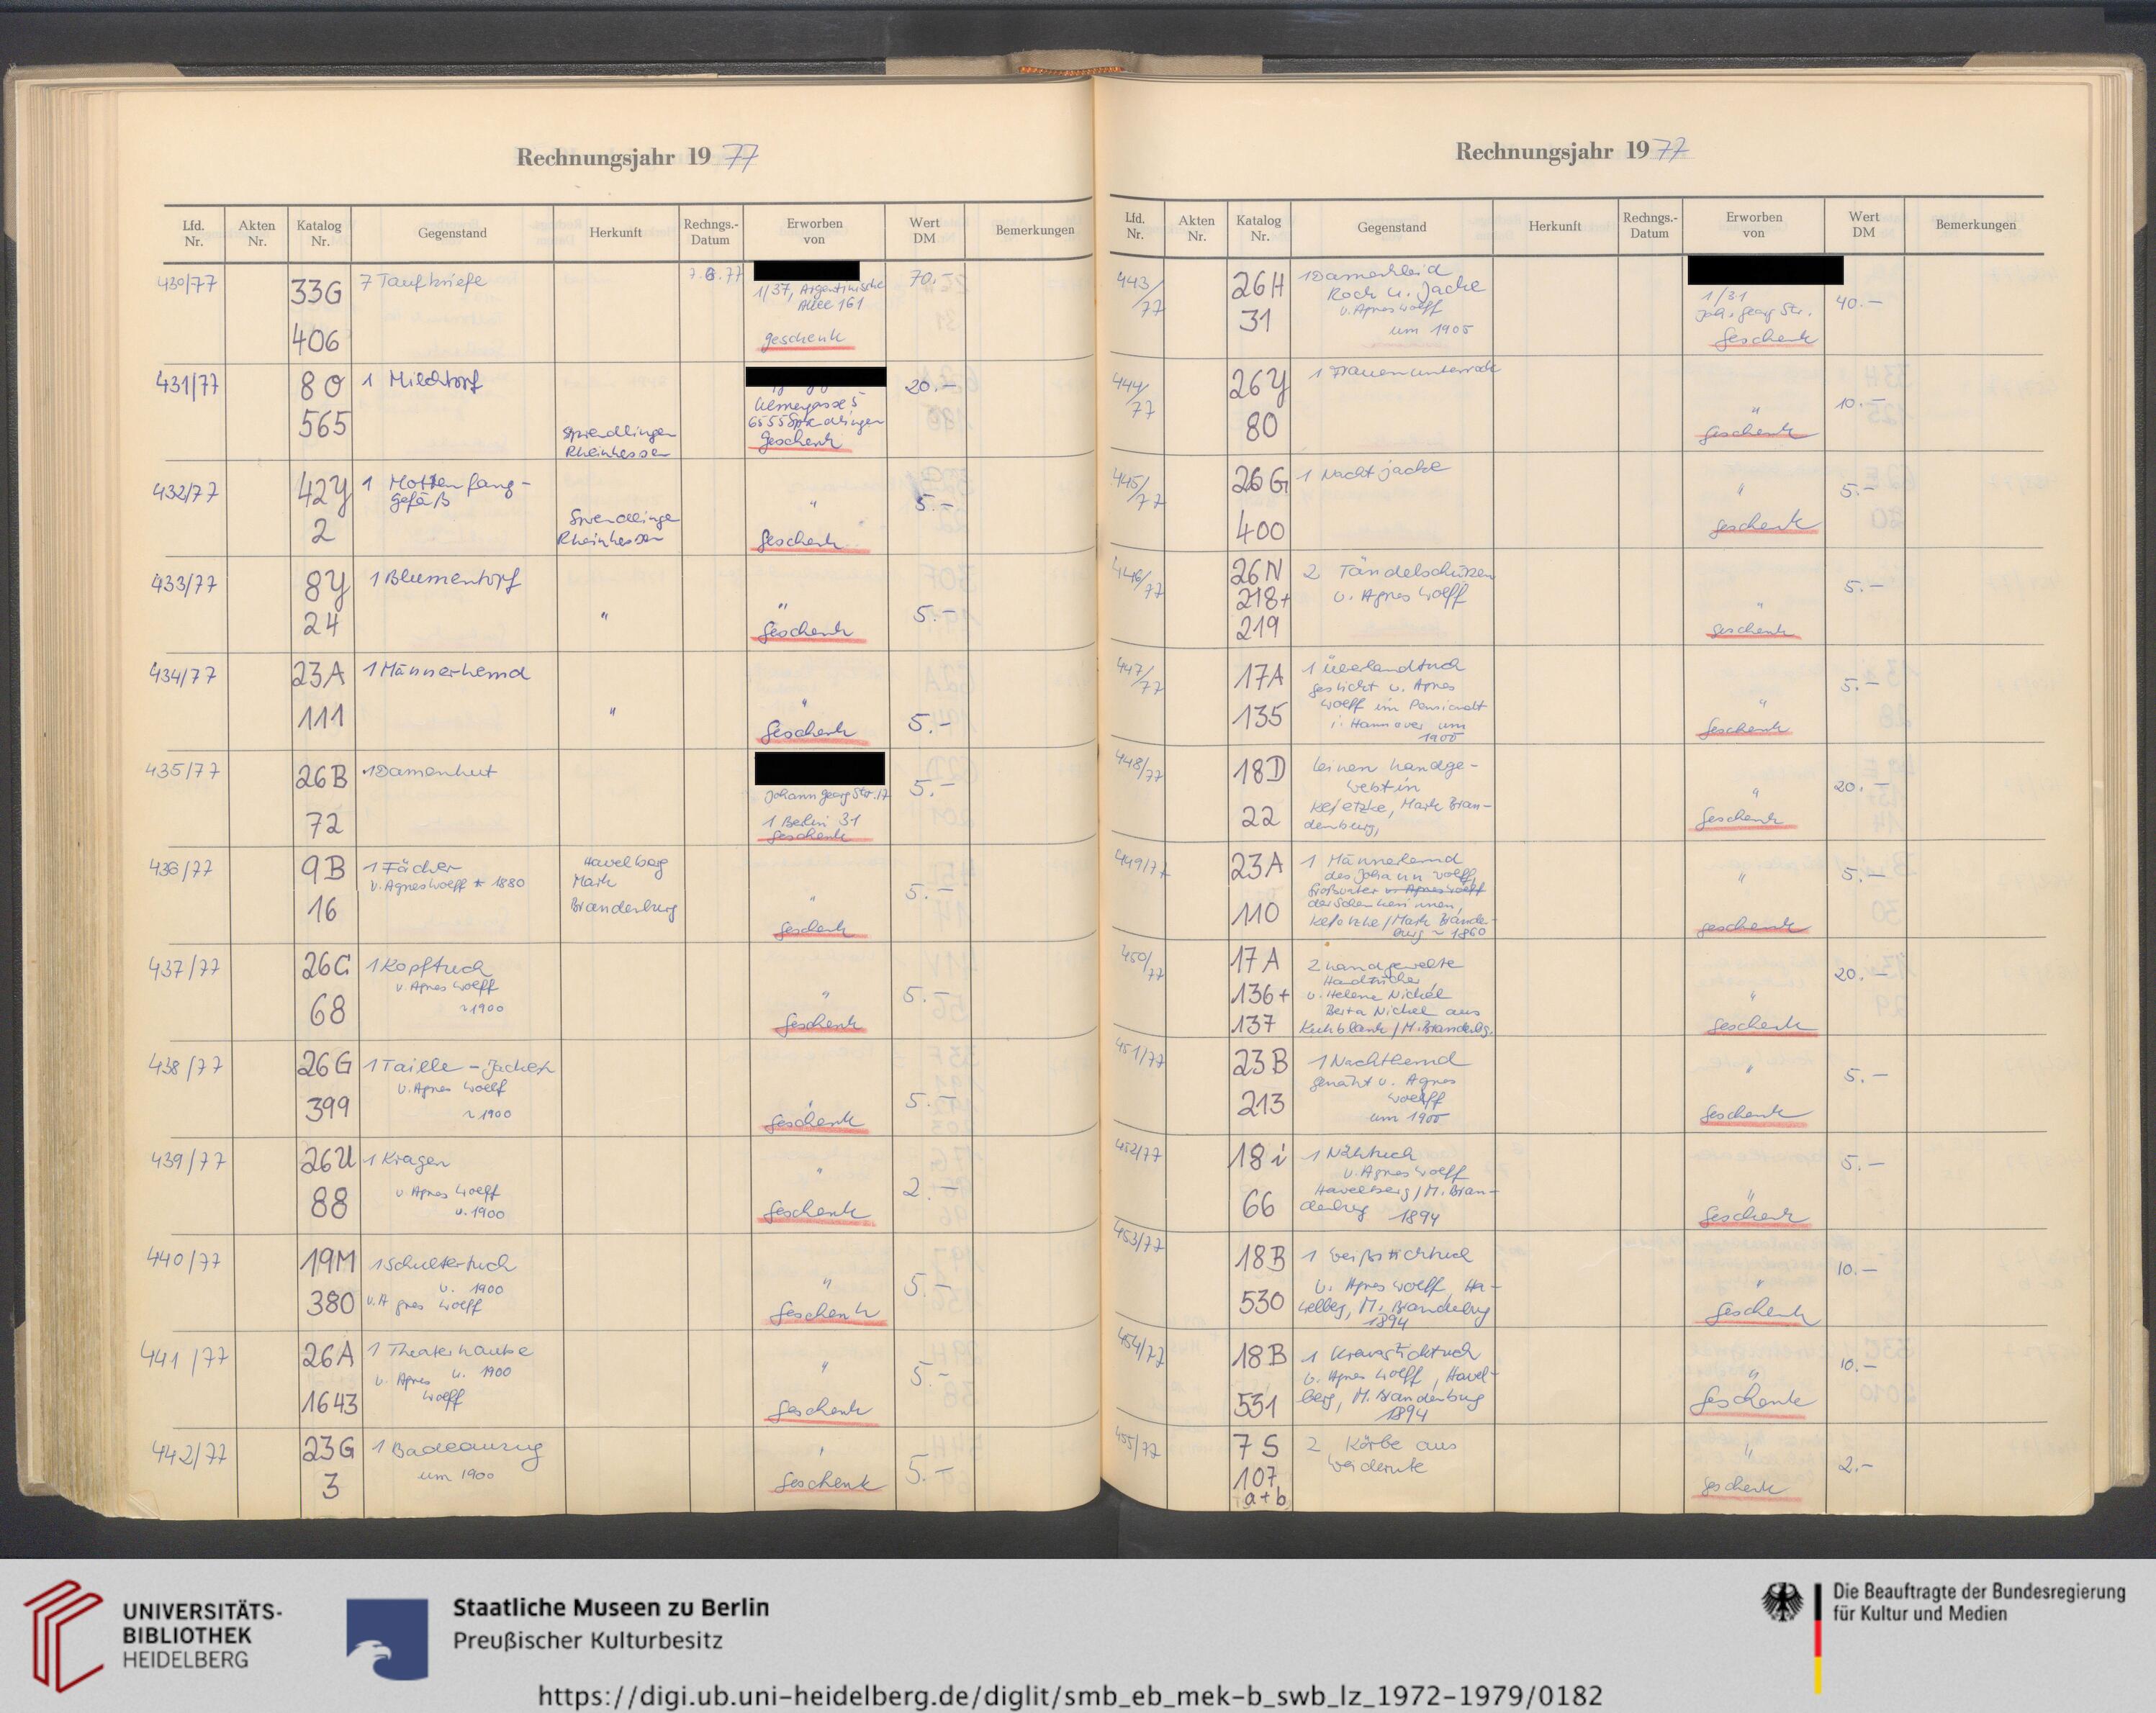 Rechnungsjahr 1977
Lfd. Nr.
Akten Nr.
Katalog Nr.
Gegenstand
Herkunft
Rechngs.-Datum
Erworben von
Wert DM
Bemerkungen
430/77 33G 7 Taufbriefe 7.6.77 70.-
1/37, Argentinische
Allee 161
406 geschenk
431/77 80 1 Milchtopf 20.-
565 6555 Sprendlingen
Sprendlingen Geschenk
Rheinhessen
432/77 42Y 1 Mottenfang-
gefäß " 5.-
2 Sprendlingen
Rheinhessen Geschenk
433/77 8Y 1 Blumentopf "
24 " Geschenk 5.-
434/77 23A 1 Männerhemd "
111 " Geschenk 5.-
435/77 26B 1 Damenhut 5.-
Johann Georg Str. 17
72 1 Berlin 31
Geschenk
436/77 9B 1 Fächer Havelberg
v. Agnes Wolff * 1880 Mark " 5.-
16 Brandenburg
Geschenk
437/77 26C 1 Kopftuch
v. Agnes Wolff " 5.-
68 ~1900
Geschenk
438/77 26G 1 Taille-Jacket
v. Agnes Wolff " 5.-
399 ~1900
Geschenk
439/77 26U 1 Kragen "
v Agnes Wolff 2.-
88 u. 1900 Geschenk
440/77 19M 1 Schultertuch
u. 1900 " 5.-
380 v. Agnes Wolff Geschenk
441/77 26A 1 Theaterhaube "
v. Agnes u. 1900 5.-
1643 Wolff Geschenk
442/77 23G 1 Badeanzug "
um 1900 5.-
3 Geschenk
Rechnungsjahr 1977
Lfd. Nr.
Akten Nr.
Katalog Nr.
Gegenstand
Herkunft
Rechngs.-Datum
Erworben von
Wert DM
Bemerkungen
443/77 26H 1 Damenkleid
Rock u. Jacke 1/31 40.-
31 v. Agnes Wolff Joh. Georg Str.
um 1905 Geschenk
444/77 26Y 1 Frauenunterrock
80 " 10.-
Geschenk
445/77 26G 1 Nachtjacke " 5.-
400 Geschenk
446/77 26N 2 Tändelschürzen 5.-
218+ v. Agnes Wolff "
219 Geschenk
447/77 17A 1 Überhandtuch
gestickt v. Agnes 5.-
135 Wolff im Pensionat "
i. Hannover um Geschenk
1900
448/77 18D Leinen handge-
webt in " 20.-
22 Mark Bran-
denburg, Geschenk
449/77 23A 1 Männerhemd
des Johann Wolff, " 5.-
Großvater v. Agnes Wolff
110 der Schenkerinnen,
/Mark Brande-
burg ~ 1860 geschenk
450/77 17A 2 handgewebte
Handtücher 20.-
136+ v. Helene Nickel "
Berta Nickel aus
137 Kuhblank/M. Brandenbg. Geschenk
451/77 23B 1 Nachthemd "
genäht v. Agnes 5.-
213 Wolff
um 1900 Geschenk
452/77 18i 1 Nähtuch 5.-
v. Agnes Wolff
66 Havelberg/M. Bran- "
denburg 1894 Geschenk
453/77 18B 1 Weißsticktuch 10.-
v. Agnes Wolff, Ha- "
530 velberg, M. Brandenburg
1894 Geschenk
454/77 18B 1 Kreuzsticktuch 10.-
v. Agnes Wolff, Havel- "
531 berg, M. Brandenburg
1894 Geschenk
455/77 7S 2 Körbe aus "
Weidenrute 2.-
107
a+b geschenk
UNIVERSITÄTS-
BIBLIOTHEK
HEIDELBERG
Staatliche Museen zu Berlin
Preußischer Kulturbesitz
Die Beauftragte der Bundesregierung
für Kultur und Medien
https://digi.ub.uni-heidelberg.de/diglit/smb_eb_mek-b_swb_lz_1972-1979/0182